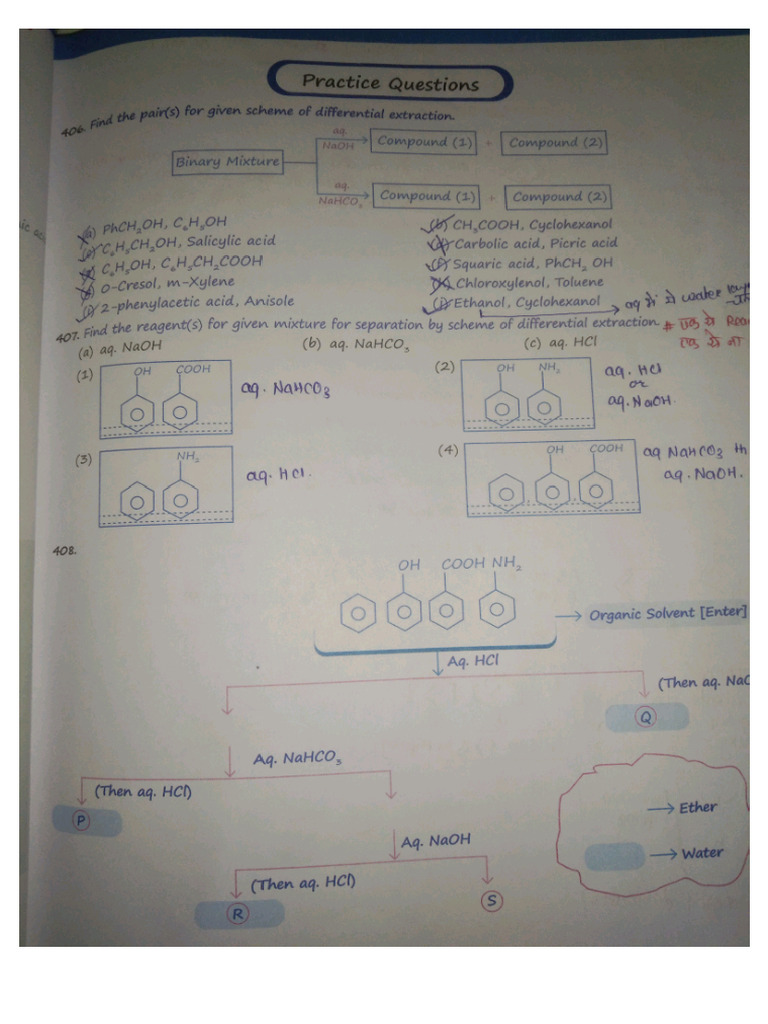 Practice Questions
406. Find the pair(s) for given scheme of differential extraction.
Binary Mixture
aq. NaOH
Compound (1) + Compound (2)
aq. NaHCO₃
Compound (1) + Compound (2)
(a) PhCH₂OH, C₆H₅OH
(b) CH₃COOH, Cyclohexanol
(c) C₆H₅CH₂OH, Salicylic acid
(d) Carbolic acid, Picric acid
C₆H₅OH, C₆H₅CH₂COOH
(f) Squaric acid, PhCH₂ OH
O-Cresol, m-Xylene
Chloroxylenol, Toluene
(i) 2-phenylacetic acid, Anisole
(j) Ethanol, Cyclohexanol
aq में ये water
407. Find the reagent(s) for given mixture for separation by scheme of differential extraction.
(a) aq. NaOH
(b) aq. NaHCO₃
(c) aq. HCl
(1)
OH COOH
aq. NaHCO₃
(2)
OH NH₂
aq. HCl
or
aq. NaOH.
(3)
NH₂
aq. HCl.
(4)
OH COOH
aq NaHCO₃ th
aq. NaOH.
408.
OH COOH NH₂
Organic Solvent [Enter]
Aq. HCl
(Then aq. NaO
Q
Aq. NaHCO₃
(Then aq. HCl)
P
Ether
Aq. NaOH
Water
(Then aq. HCl)
R
S